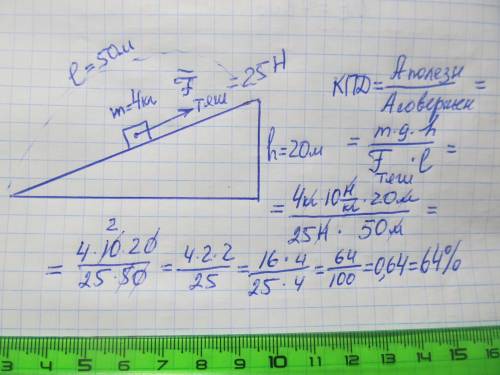 ℓ=50м
F тяги =25Н
m=4кг
h=20м
КПД = Аполезн / Асовершен =
= m·g·h / F тяги · ℓ =
= 4кг·10 Н/кг ·20м / 25Н · 50м =
= 4·10·20 / 25·50 = 4·2·2 / 25 = 16·4 / 25·4 = 64 / 100 = 0,64 = 64%
3 4 5 6 7 8 9 10 11 12 13 14 15 16